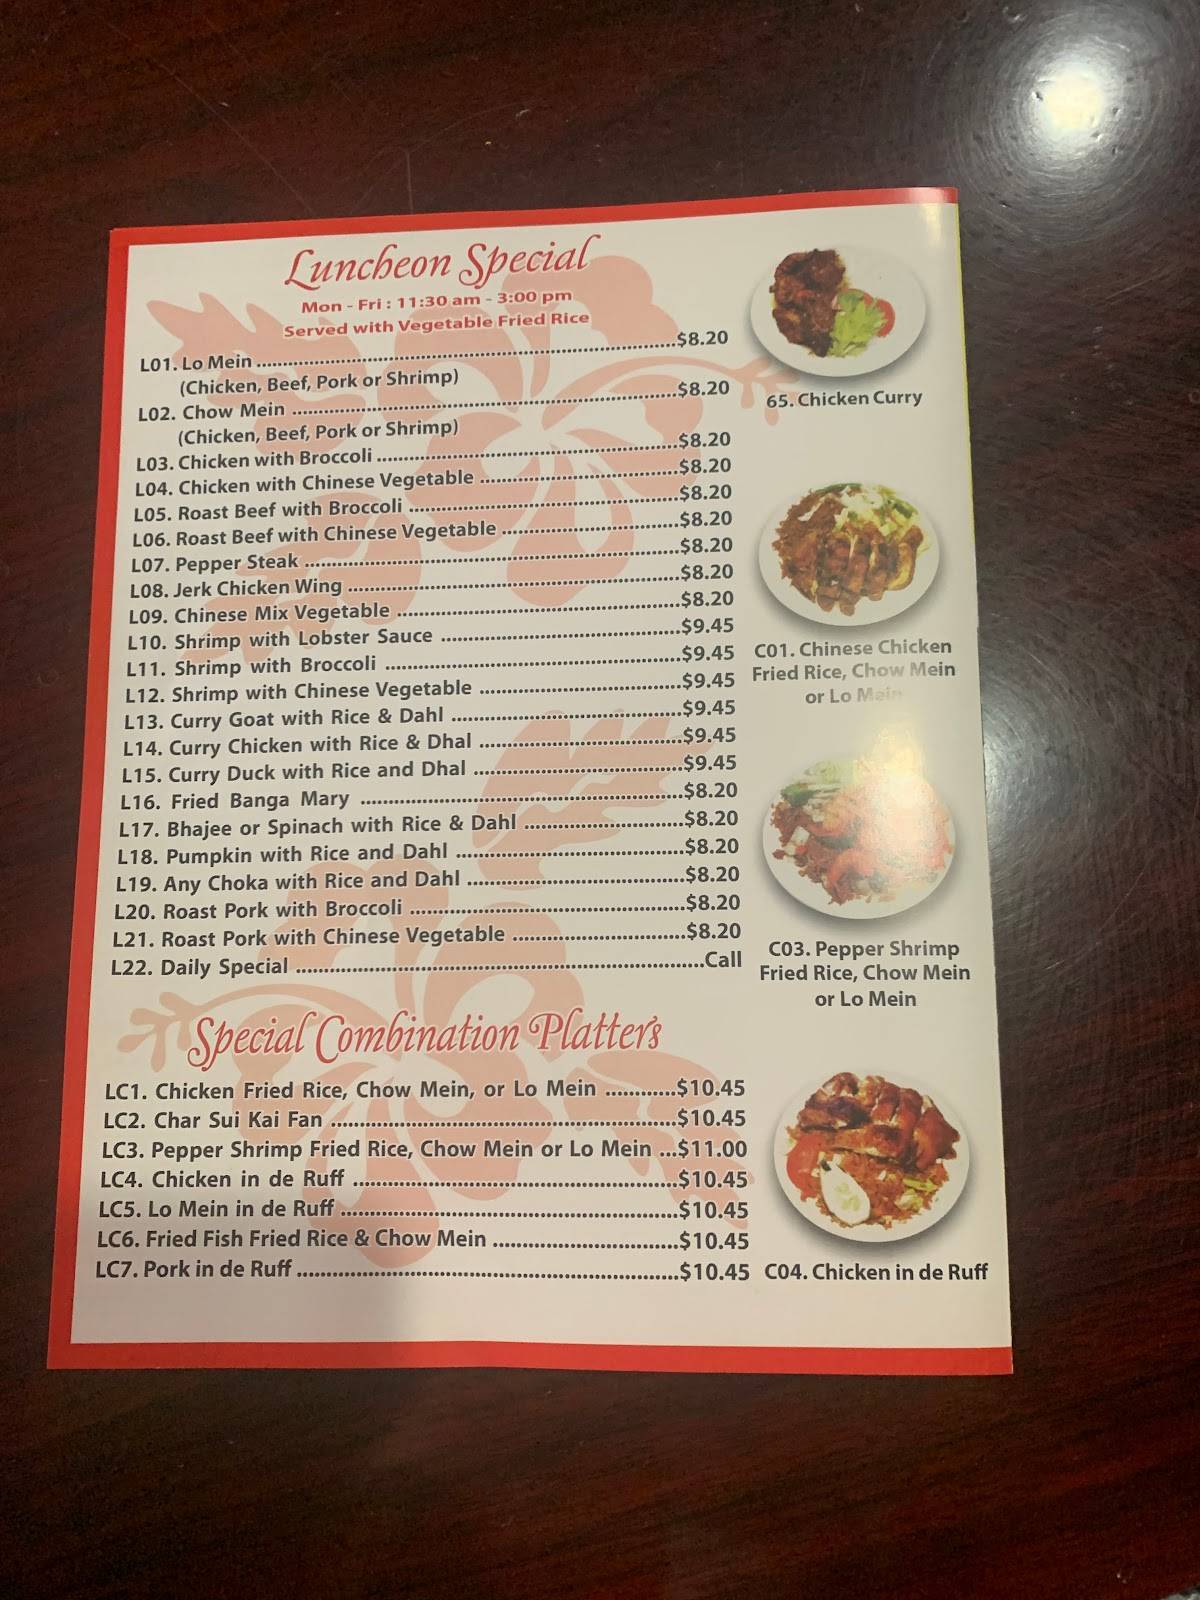 Luncheon Special
Mon - Fri : 11:30 am - 3:00 pm
Served with Vegetable Fried Rice
L01. Lo Mein ........ $8.20
(Chicken, Beef, Pork or Shrimp)
L02. Chow Mein ........ $8.20
(Chicken, Beef, Pork or Shrimp)
L03. Chicken with Broccoli ........ $8.20
L04. Chicken with Chinese Vegetable ........ $8.20
L05. Roast Beef with Broccoli ........ $8.20
L06. Roast Beef with Chinese Vegetable ........ $8.20
L07. Pepper Steak ........ $8.20
L08. Jerk Chicken Wing ........ $8.20
L09. Chinese Mix Vegetable ........ $8.20
L10. Shrimp with Lobster Sauce ........ $9.45
L11. Shrimp with Broccoli ........ $9.45
L12. Shrimp with Chinese Vegetable ........ $9.45
L13. Curry Goat with Rice & Dahl ........ $9.45
L14. Curry Chicken with Rice & Dhal ........ $9.45
L15. Curry Duck with Rice and Dhal ........ $9.45
L16. Fried Banga Mary ........ $8.20
L17. Bhajee or Spinach with Rice & Dahl ........ $8.20
L18. Pumpkin with Rice and Dahl ........ $8.20
L19. Any Choka with Rice and Dahl ........ $8.20
L20. Roast Pork with Broccoli ........ $8.20
L21. Roast Pork with Chinese Vegetable ........ $8.20
L22. Daily Special ........ Call
Special Combination Platters
LC1. Chicken Fried Rice, Chow Mein, or Lo Mein ........ $10.45
LC2. Char Sui Kai Fan ........ $10.45
LC3. Pepper Shrimp Fried Rice, Chow Mein or Lo Mein ... $11.00
LC4. Chicken in de Ruff ........ $10.45
LC5. Lo Mein in de Ruff ........ $10.45
LC6. Fried Fish Fried Rice & Chow Mein ........ $10.45
LC7. Pork in de Ruff ........ $10.45
65. Chicken Curry
C01. Chinese Chicken
Fried Rice, Chow Mein
or Lo Mein
C03. Pepper Shrimp
Fried Rice, Chow Mein
or Lo Mein
C04. Chicken in de Ruff